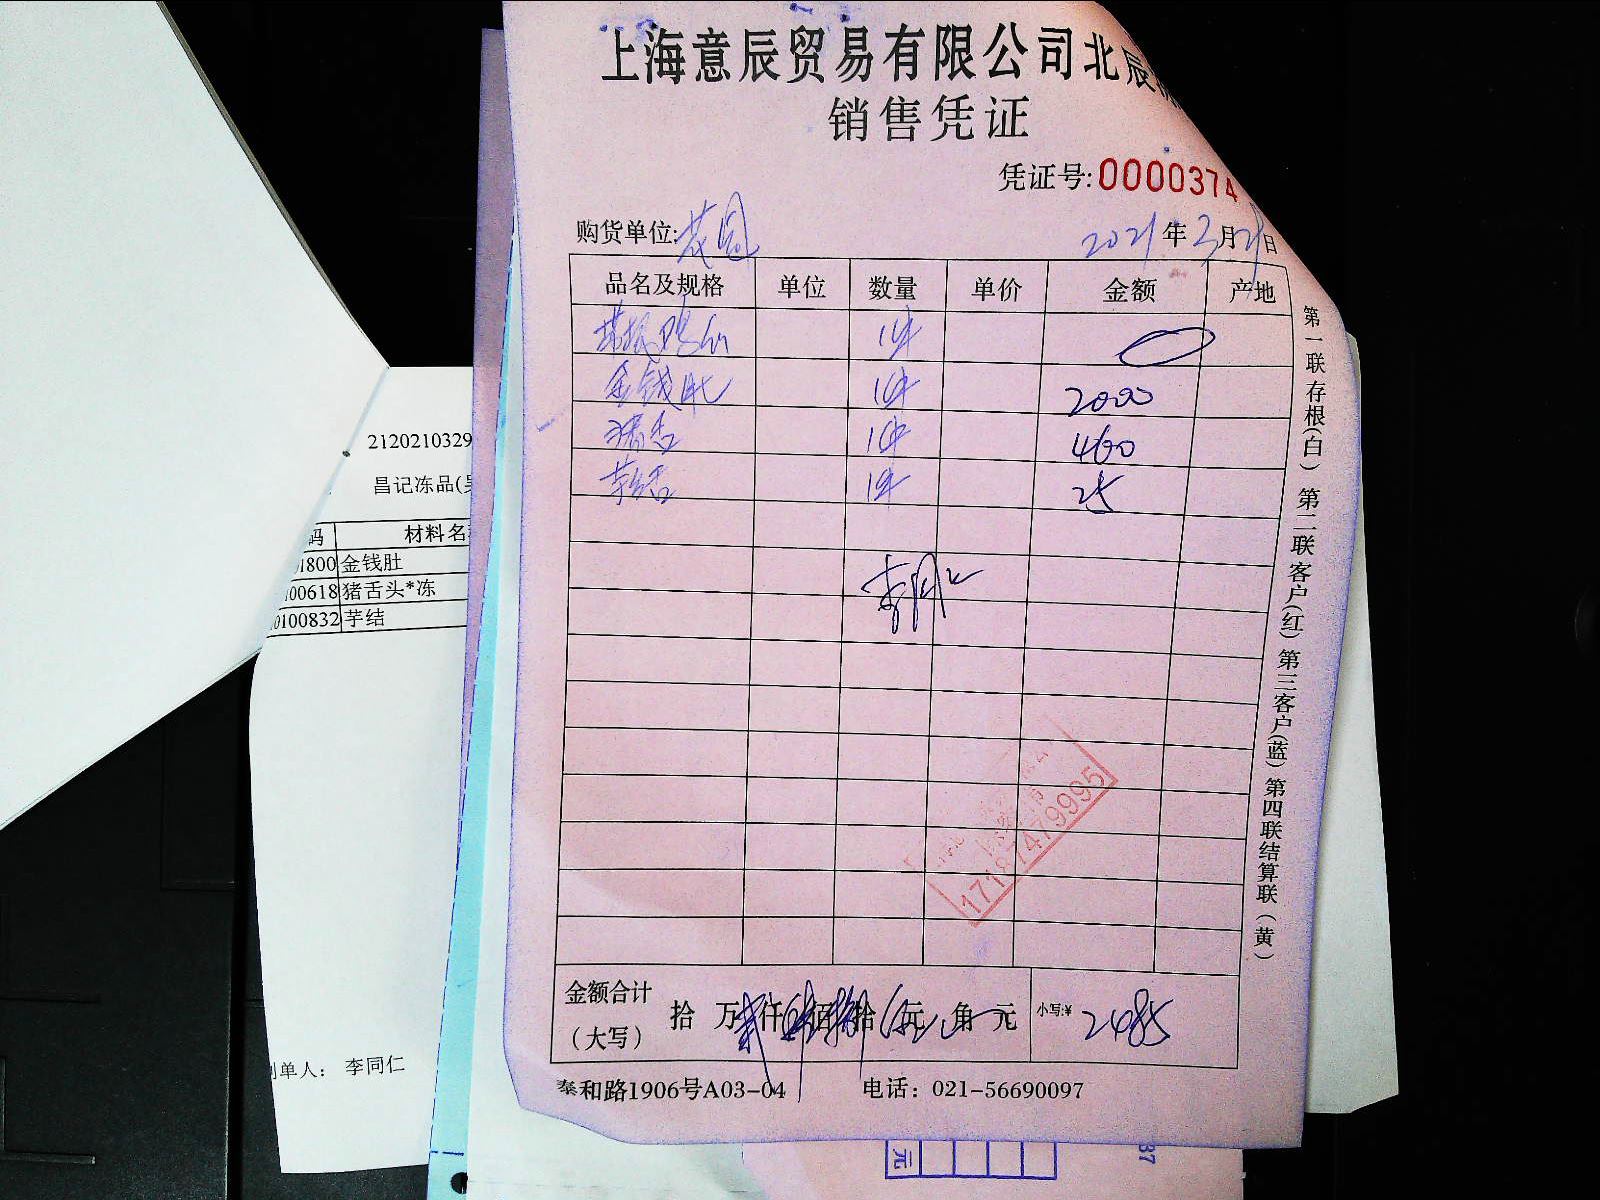 上海意辰贸易有限公司北辰
销售凭证
凭证号:0000374
购货单位:茂园
2021年3月29日
品名及规格 单位 数量 单价 金额 产地
1件
金钱肚 1件 2000
猪舌 1件 460
芋结 1件 25
李同仁
17187479995
金额合计
(大写)
拾 万 仟 佰 拾 元 角 元
小写:¥ 2485
泰和路1906号A03-04 电话：021-56690097
第一联存根(白) 第二联客户(红) 第三客户(蓝) 第四联结算联(黄)
2120210329
昌记冻品(
码 材料名
1800 金钱肚
100618 猪舌头*冻
0100832 芋结
单人： 李同仁
元
37